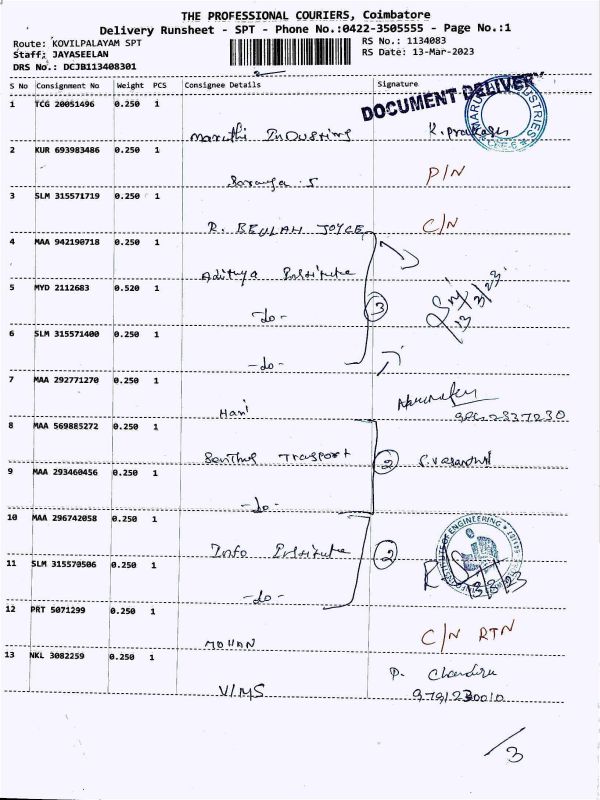 THE PROFESSIONAL COURIERS, Coimbatore
Delivery Runsheet - SPT - Phone No.:0422-3505555 - Page No.:1
Route: KOVILPALAYAM SPT RS No.: 1134083
Staff: JAYASEELAN RS Date: 13-Mar-2023
DRS No.: DCJB113408301
S No Consignment No Weight PCS Consignee Details Signature
DOCUMENT DELIVER
1 TCG 20051496 0.250 1
Maruthi Industries K. Prakash
CBE-6
2 KUR 693983486 0.250 1
P/N
3 SLM 315571719 0.250 1
R. BEULAH JOYCE C/N
4 MAA 942190718 0.250 1
Adithya Institute
5 MYD 2112683 0.520 1
-do- 3 13/3/23
6 SLM 315571400 0.250 1
-do-
7 MAA 292771270 0.250 1
Hari
8 MAA 569885272 0.250 1
Transport 2
9 MAA 293460456 0.250 1
-do-
10 MAA 296742058 0.250 1
Info Institute 2
OF ENGINEERING
11 SLM 315570506 0.250 1
-do- 13/3/23
12 PRT 5071299 0.250 1
MOHAN C/N RTN
13 NKL 3082259 0.250 1
VIMS P.
/3